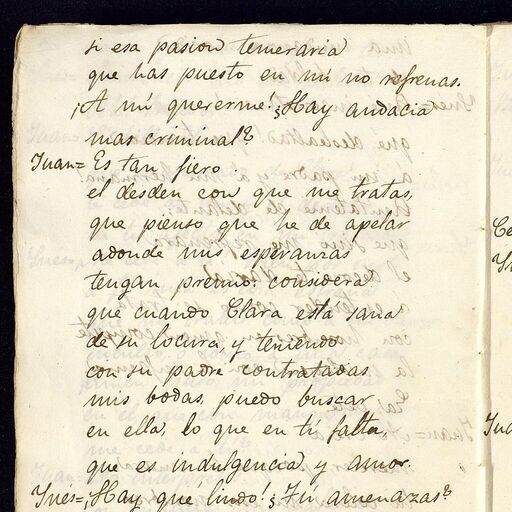 si esa pasion temeraria
que has puesto en mí no refrenas.
¡A mí quererme! ¿Hay audacia
mas criminal?
Juan= Es tan fiero
el desden con que me tratas,
que pienso que he de apelar
adonde mis esperanzas
tengan premio: considera
que cuando Clara esta sana
de su locura, y teniendo
con su padre contratadas
mis bodas, puedo buscar
en ella, lo que en tí falta,
que es indulgencia y amor.
Ines= ¡Hay que lindo! ¿Tú amenazas?
Juan